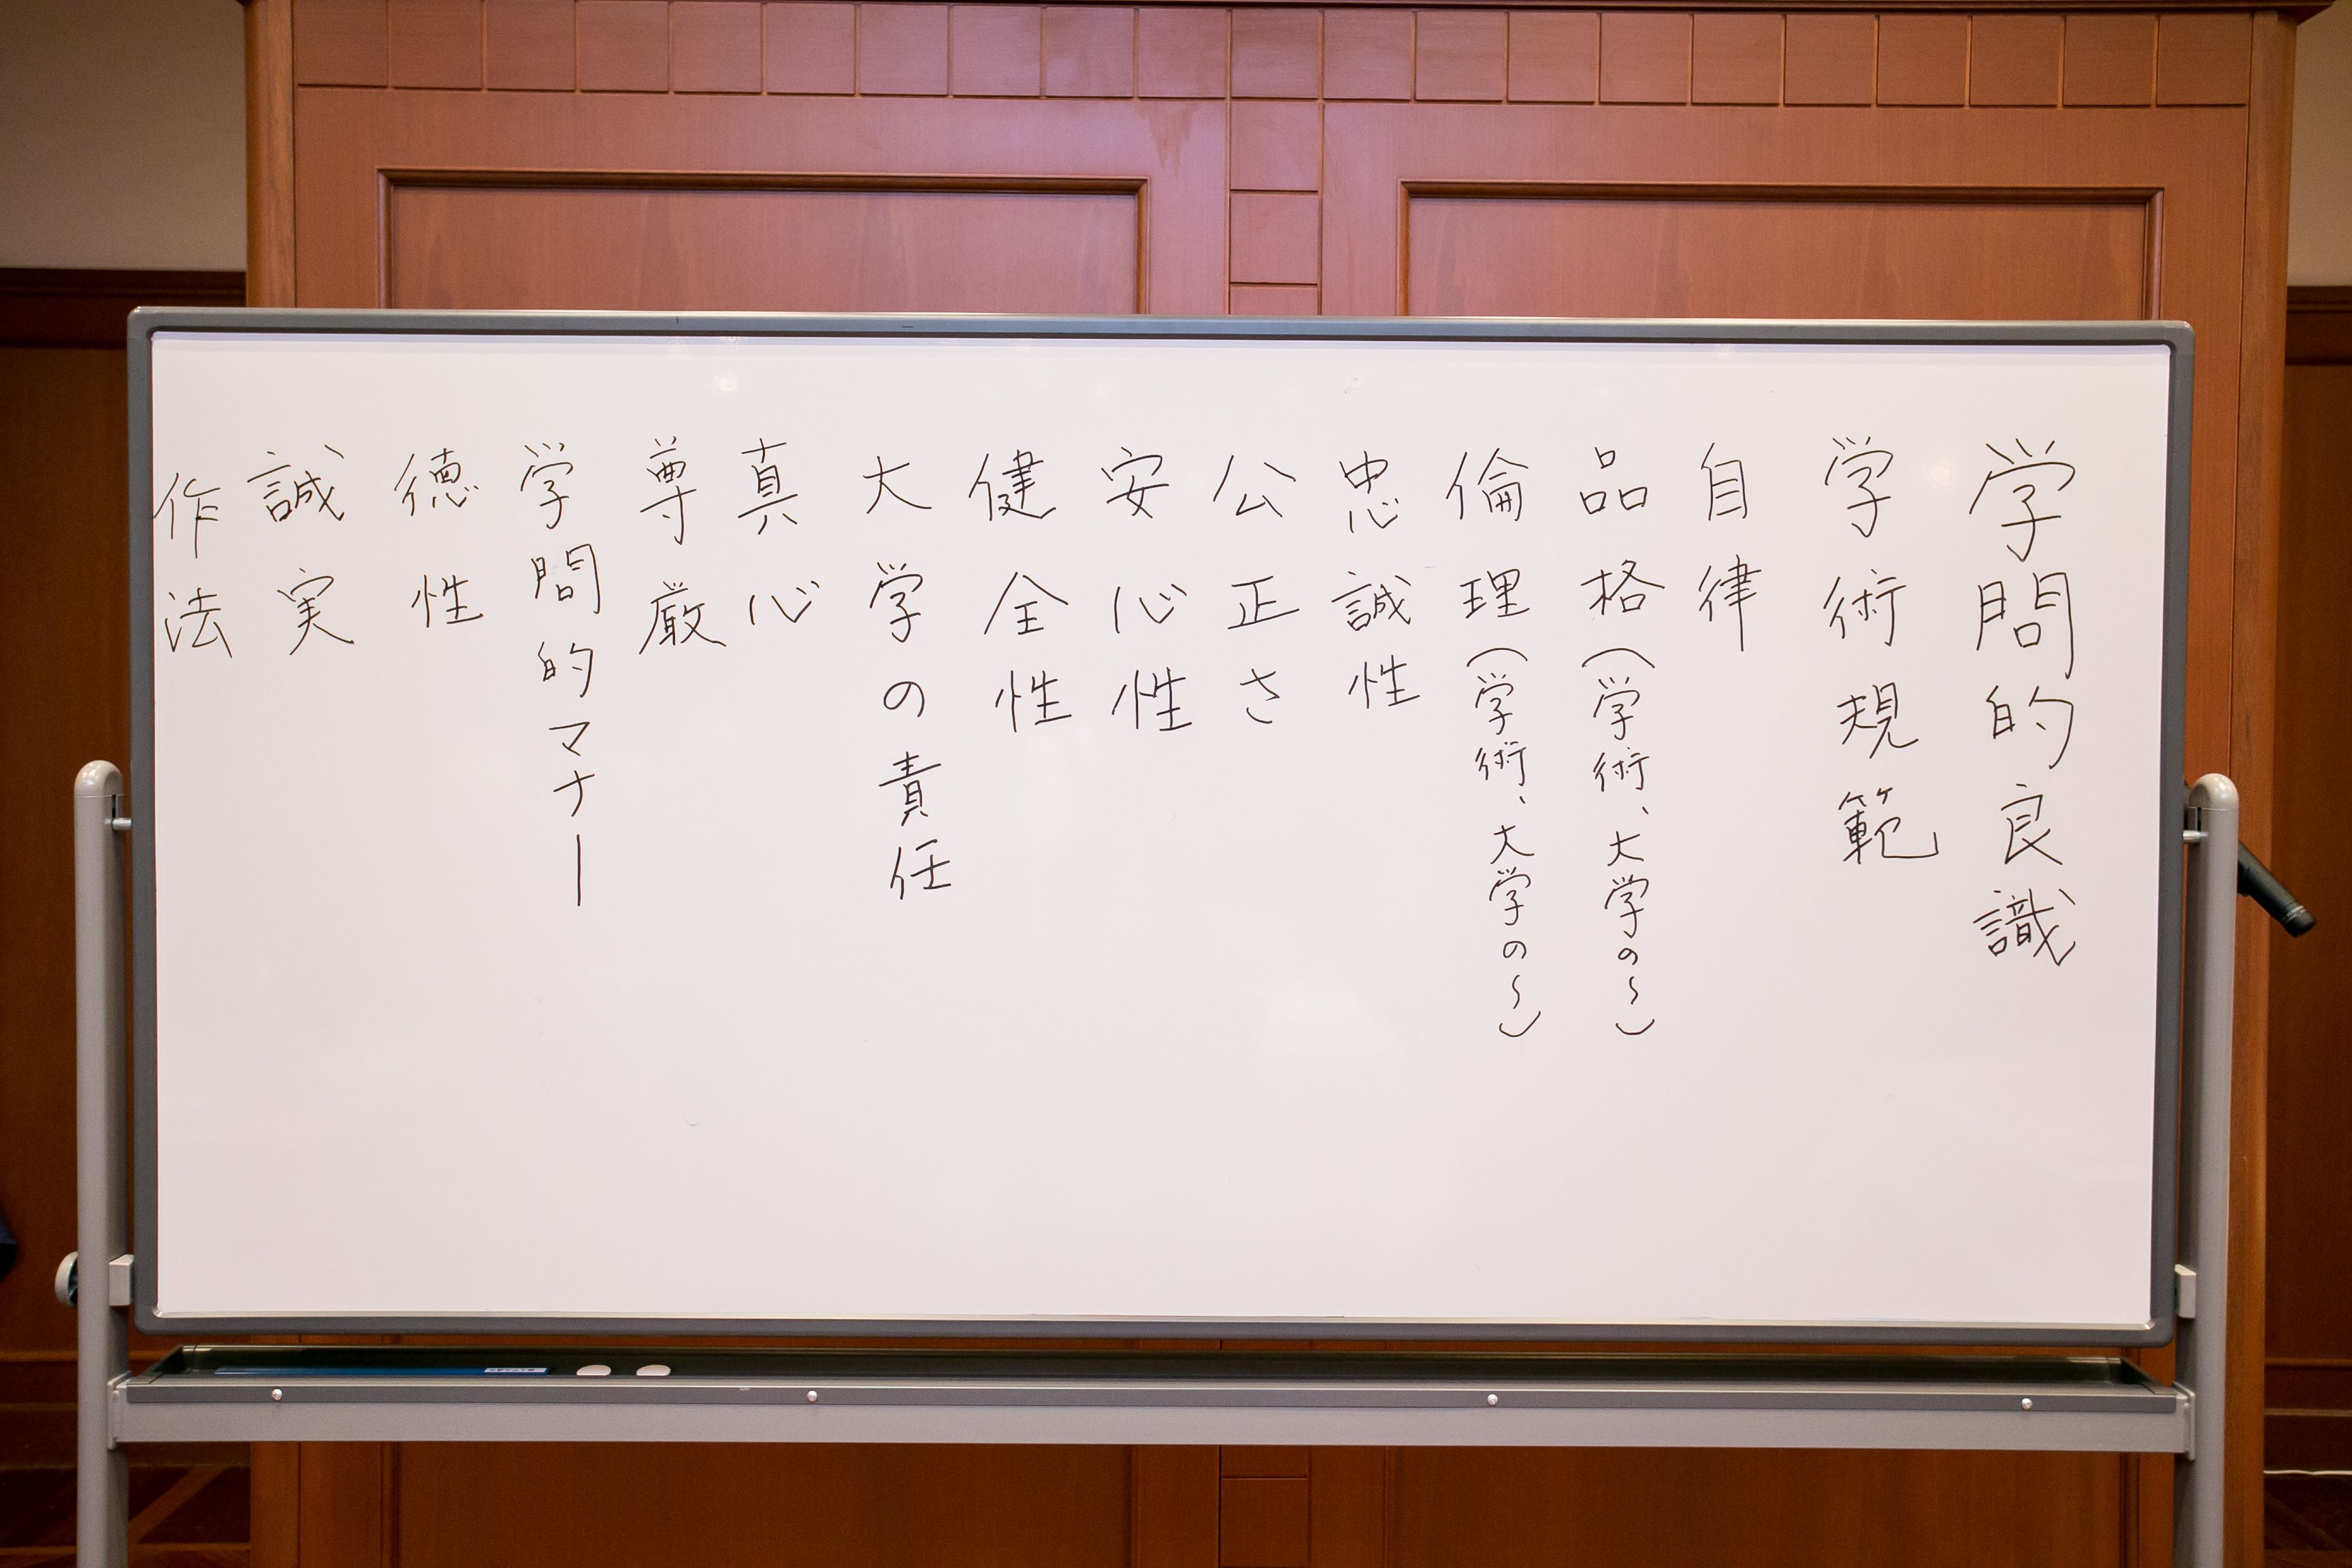 学問的良識
学術規範
自律
品格(学術、大学の〜)
倫理(学術、大学の〜)
忠誠性
公正さ
安心性
健全性
大学の責任
真心
尊厳
学問的マナー
徳性
誠実
作法